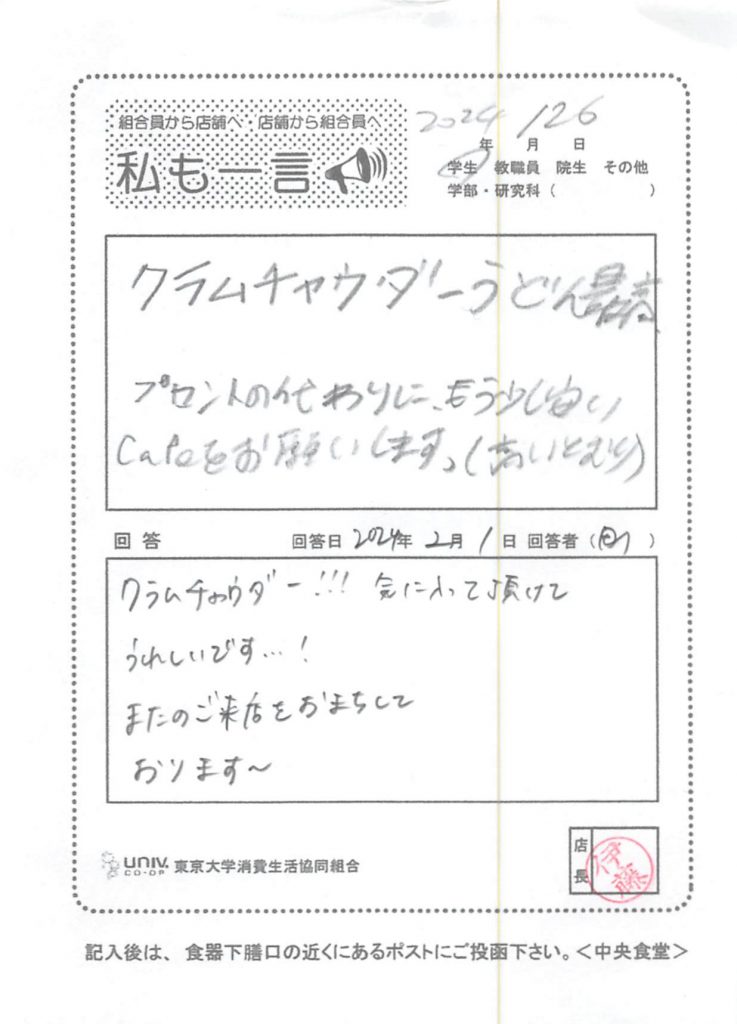 組合員から店舗へ・店舗から組合員へ
私も一言
2024 1 26
年 月 日
学生 教職員 院生 その他
学部・研究科 ( )
クラムチャウダーうどん最高
プロントの代わりに、もう少し安い
Cafeをお願いします。(高いとむり)
回答 回答日 2024年 2月 1日 回答者 ( )
クラムチャウダー!!! 気に入って頂けて
うれしいです…!
またのご来店をおまちして
おります〜
店長
伊藤
UNIV. CO-OP 東京大学消費生活協同組合
記入後は、食器下膳口の近くにあるポストにご投函下さい。<中央食堂>